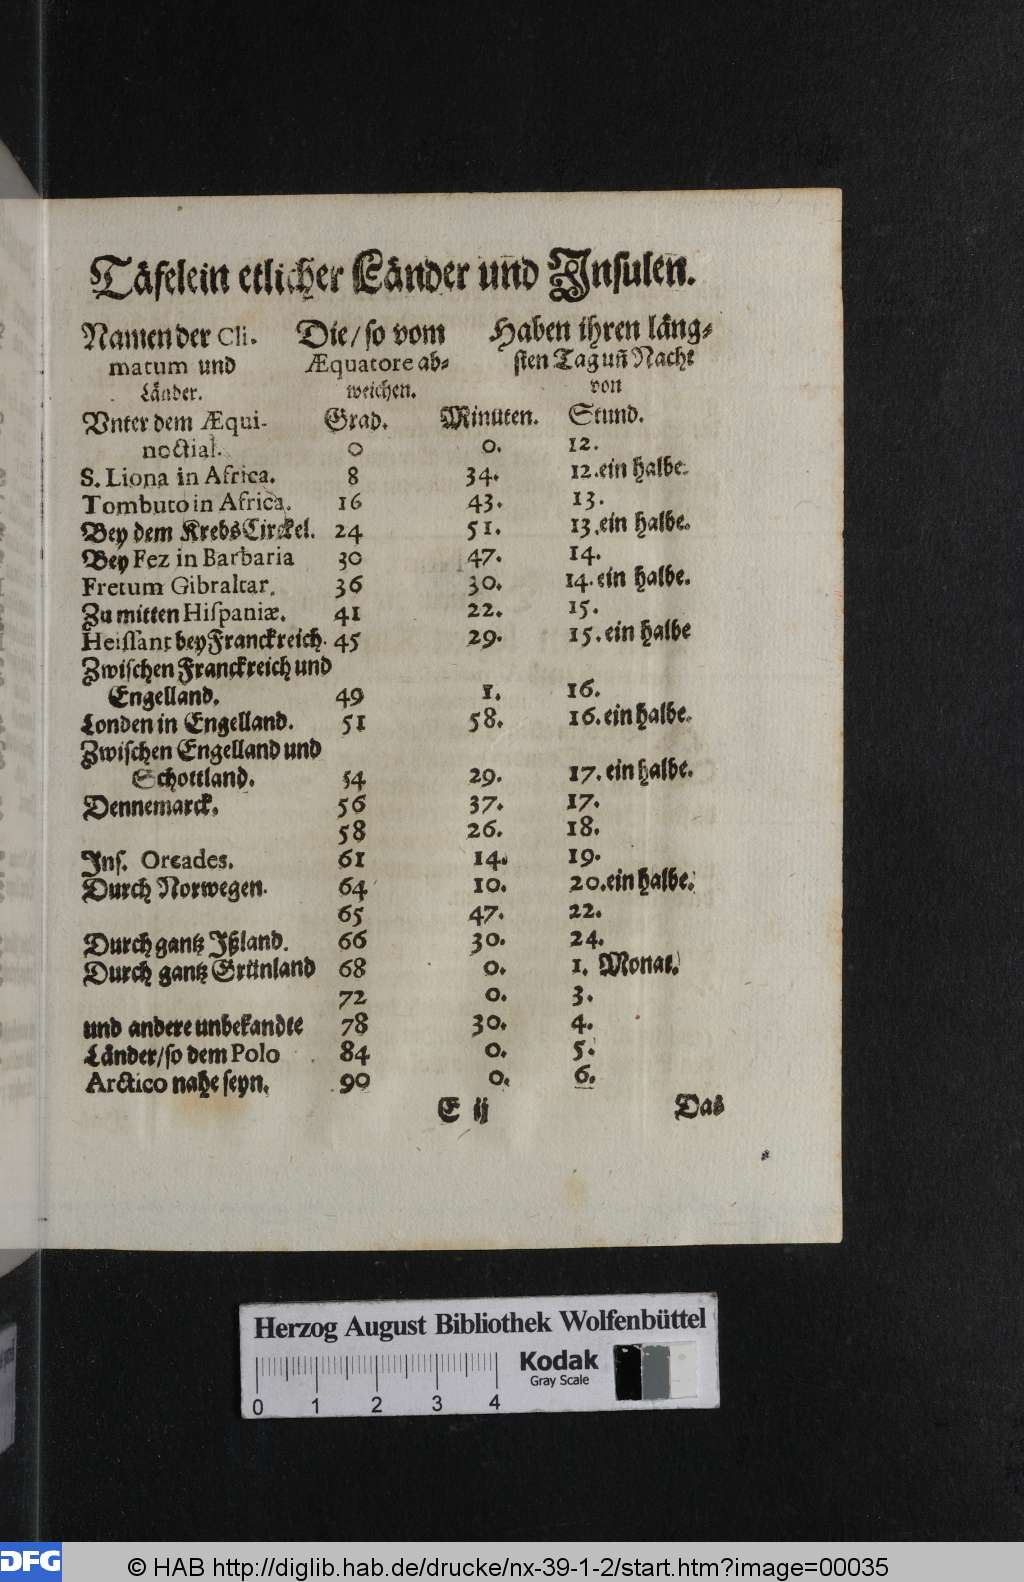 Täfelein etlicher Länder uñd Insulen.
Namen der Cli- Die / so vom Haben ihren läng-
matum und Æquatore ab- sten Tag uñ Nacht
Länder. weichen. von
Vnter dem Æqui- Grad. Minuten. Stund.
noctial. 0 0. 12.
S. Liona in Africa. 8 34. 12. ein halbe.
Tombuto in Africa. 16 43. 13.
Bey dem Krebs Circkel. 24 51. 13. ein halbe.
Bey Fez in Barbaria 30 47. 14.
Fretum Gibraltar. 36 30. 14. ein halbe.
Zu mitten Hispaniæ. 41 22. 15.
Heissant bey Franckreich. 45 29. 15. ein halbe
Zwischen Franckreich und
Engelland. 49 1. 16.
Londen in Engelland. 51 58. 16. ein halbe.
Zwischen Engelland und
Schottland. 54 29. 17. ein halbe.
Dennemarck. 56 37. 17.
58 26. 18.
Ins. Orcades. 61 14. 19.
Durch Norwegen. 64 10. 20. ein halbe.
65 47. 22.
Durch gantz Ißland. 66 30. 24.
Durch gantz Grünland 68 0. 1. Monat.
72 0. 3.
und andere unbekandte 78 30. 4.
Länder / so dem Polo 84 0. 5.
Arctico nahe seyn. 90 0. 6.
E ij Das
Herzog August Bibliothek Wolfenbüttel
Kodak
Gray Scale
0 1 2 3 4
DFG © HAB http://diglib.hab.de/drucke/nx-39-1-2/start.htm?image=00035